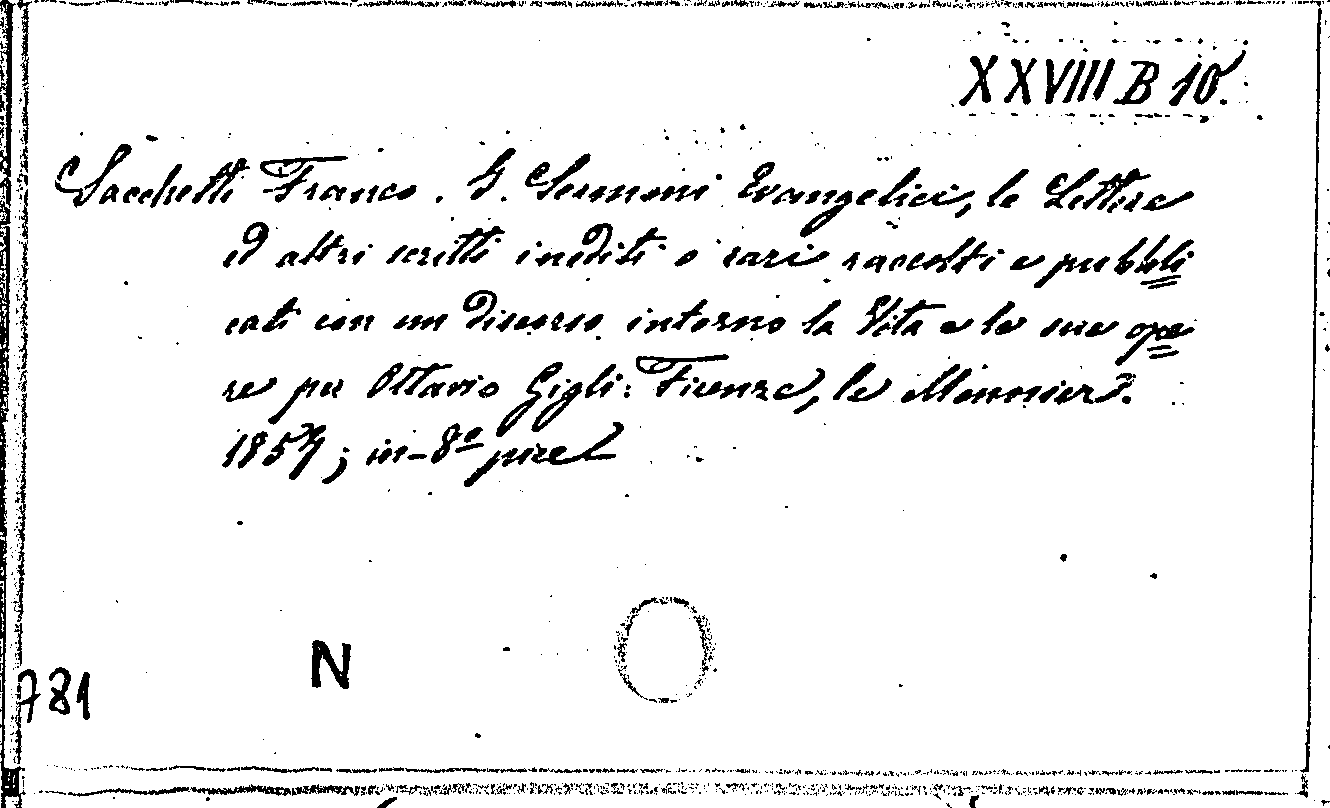 XXVIII B 10.
Sacchetti Franco. I. Sermoni Evangelici, le Lettere
ed altri scritti inediti o rari raccolti e pubbli
cati con un discorso intorno la Vita e le sue ope
re per Ottavio Gigli: Firenze, le Monnier.
1857; in-8º picc
N
781